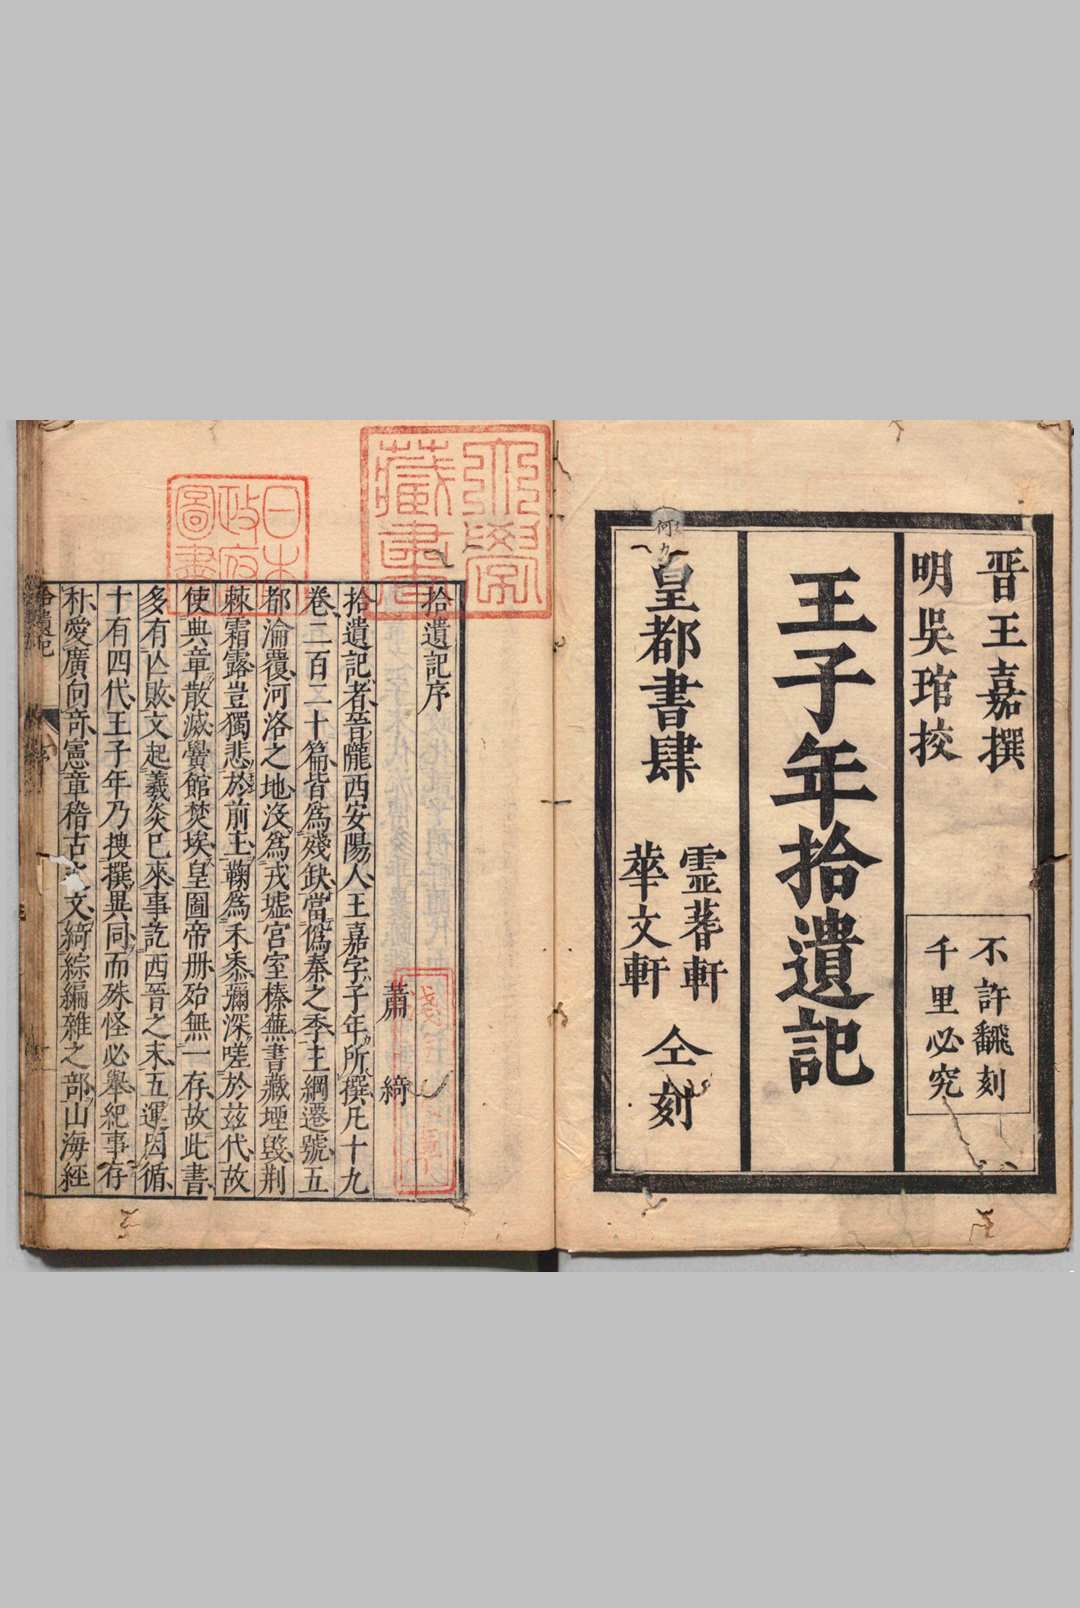 晉王嘉撰
明吳琯挍
不許翻刻
千里必究
王子年拾遺記
皇都書肆
霊蓍軒
華文軒
仝刻
拾遺記序
蕭綺
拾遺記者晉隴西安陽人王嘉字子年所撰凡十九
卷二百二十篇皆爲殘缺當僞秦之季王綱遷號五
都淪覆河洛之地沒爲戎墟宮室榛蕪書藏堙毀荆
棘霜露豈獨悲於前王鞠爲禾黍彌深嗟於茲代故
使典章散滅黌館焚埃皇圖帝册殆無一存故此書
多有亾敗文起羲炎已來事訖西晉之末五運因循
十有四代王子年乃搜撰異同而殊怪必舉紀事存
朴愛廣尚竒憲章稽古之文綺綜編雜之部山海經
日本
政府
圖書
藏書
拾遺記